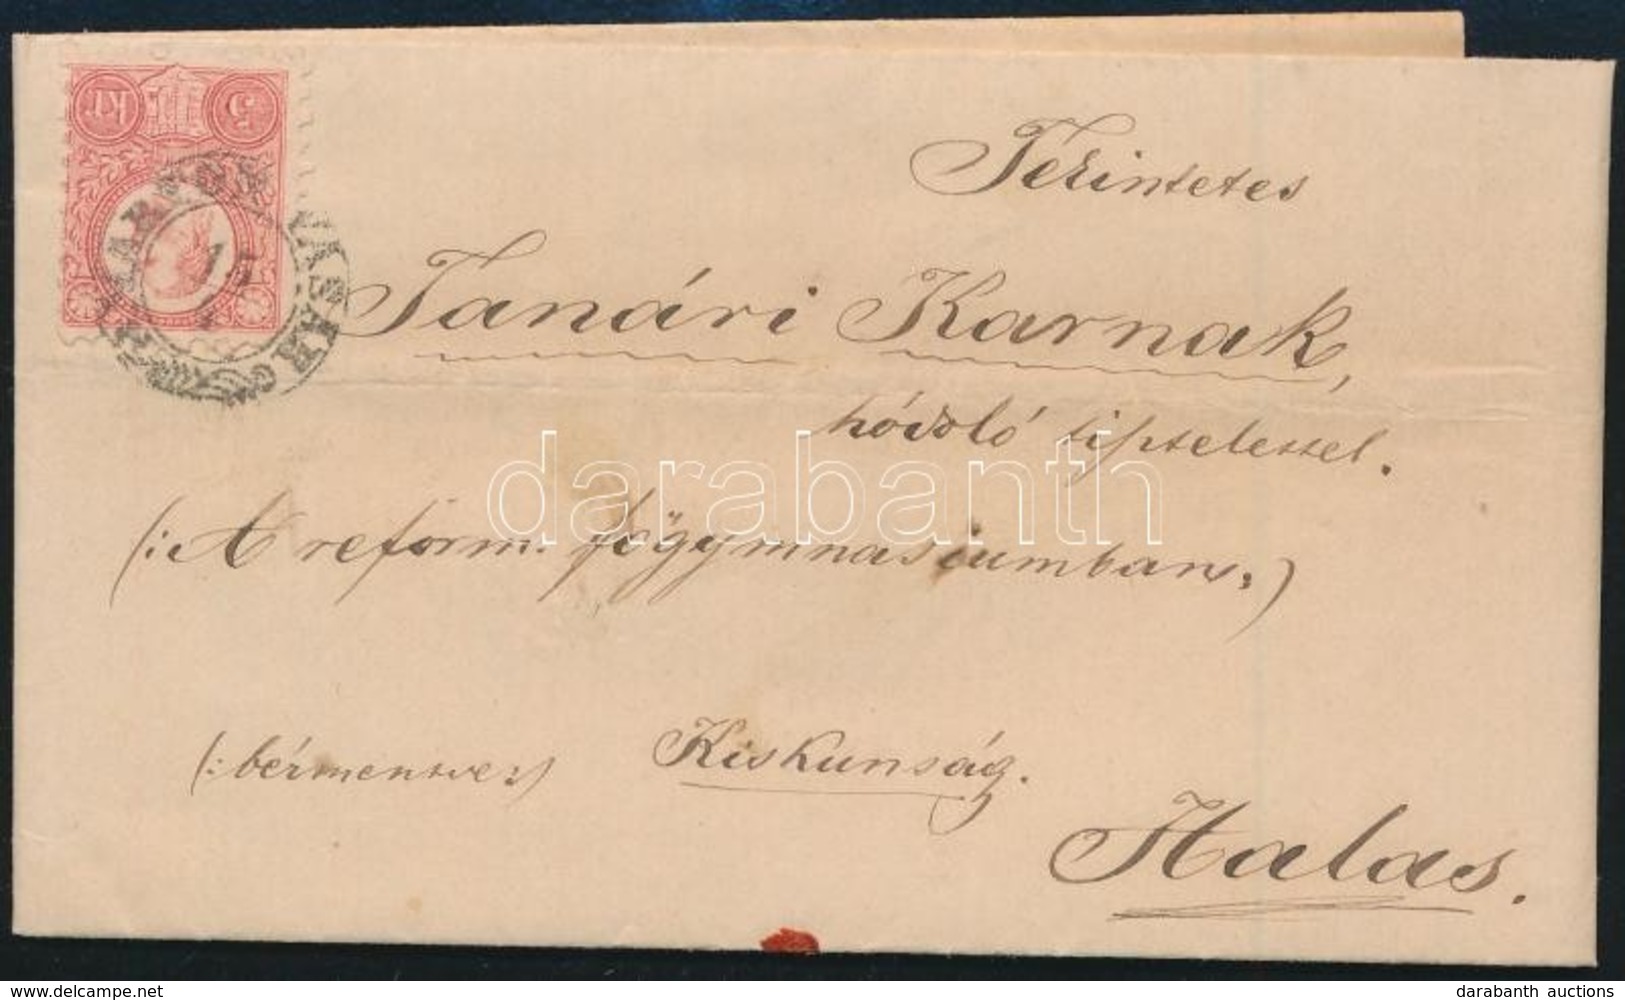 kr 5
VÁSÁRH
15
Tekintetes
Tanári Karnak,
hódoló tisztelettel.
(: A reform. fögymnasiumban :)
(: bérmentve :) Kiskunság.
Halas.
darabanth
delcampe.net
darabanth auctions